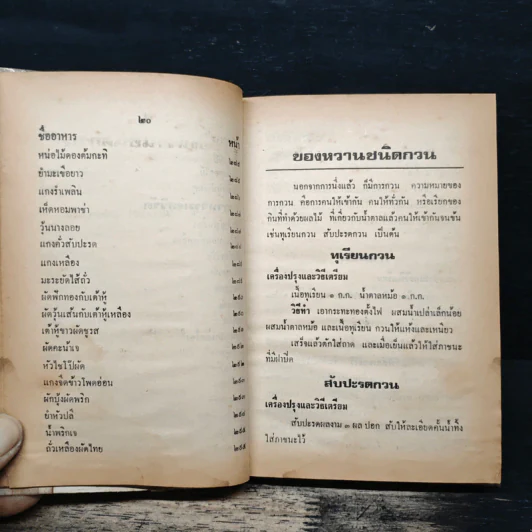 ๒๐
ชื่ออาหาร
หน้า
หน่อไม้ดองต้มกะทิ
ยำมะเขือยาว
แกงรำเพลิน
เห็ดหอมพาข่า
วุ้นนางลอย
แกงคั่วสับปะรด
แกงเหลือง
มะระยัดไส้ถั่ว
ผัดพริกทองกับเต้าหู้
ผัดวุ้นเส้นกับเต้าหู้เหลือง
เต้าหู้ขาวผัดชูรส
ผัดคะน้าเจ
หัวไชโป๊ผัด
แกงจืดข้าวโพดอ่อน
ผักบุ้งผัดพริก
ยำหัวปลี
น้ำพริกเจ
ถั่วเหลืองผัดไทย
ของหวานชนิดกวน
นอกจากการนึ่งแล้ว ก็มีการกวน ความหมายของ
การกวน คือการคนให้เข้ากัน คนให้ทั่วกัน หรือเรียกของ
กินที่ทำด้วยผลไม้ ที่เคี่ยวกับน้ำตาลแล้วคนให้เข้ากันจนข้น
เช่นทุเรียนกวน สับปะรดกวน เป็นต้น
ทุเรียนกวน
เครื่องปรุงและวิธีเตรียม
เนื้อทุเรียน ๑ ก.ก. น้ำตาลหม้อ ๑ ก.ก.
วิธีทำ เอากะทะทองตั้งไฟ ผสมน้ำเปล่าเล็กน้อย
ผสมน้ำตาลหม้อ และเนื้อทุเรียน กวนให้แห้งและเหนียว
เสร็จแล้วตักใส่ถาด และเมื่อเย็นแล้วให้ใส่ภาชนะ
ที่มีฝาปิด
สับปะรดกวน
เครื่องปรุงและวิธีเตรียม
สับปะรดผลงาม ๓ ผล ปอก สับให้ละเอียดคั้นน้ำทิ้ง
ใส่ภาชนะไว้